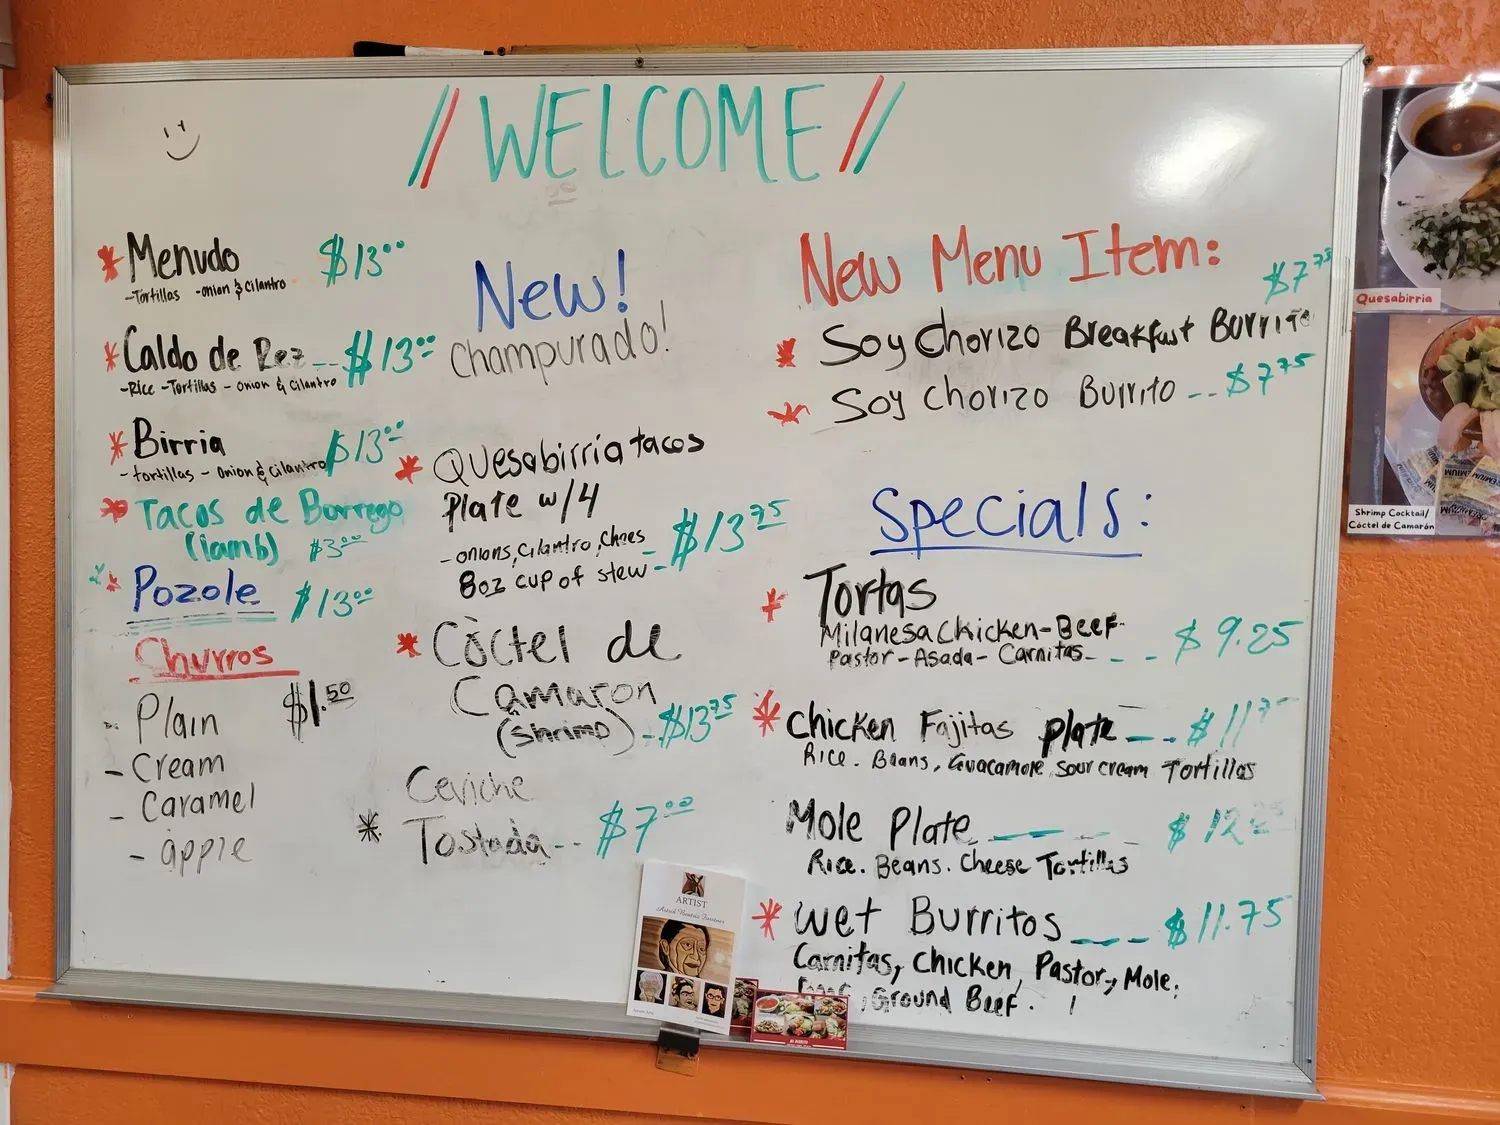 // WELCOME //
* Menudo $13.00
- Tortillas - onion & cilantro
* Caldo de Rez -- $13.00
- Rice - Tortillas - onion & cilantro
* Birria $13.00
- tortillas - onion & cilantro
* Tacos de Borrego
(lamb) $3.00
* Pozole $13.00
Churros
- Plain $1.50
- Cream
- Caramel
- apple
New!
Champurado!
* Quesabirria tacos
Plate w/4
- onions, cilantro, chees
8oz cup of stew - $13.75
* Còctel de
Camaron
(shrimp) - $13.75
Ceviche
* Tostada -- $7.00
New Menu Item:
$7.75
* Soy Chorizo Breakfast Burrito
* Soy Chorizo Burrito -- $7.75
Specials:
* Tortas
Milanesa Chicken - Beef
Pastor - Asada - Carnitas - - - $9.25
* Chicken Fajitas plate -- $11.75
Rice. Beans, Guacamole, sour cream Tortillas
Mole Plate --- $12
Rice. Beans. Cheese Tortillas
* Wet Burritos --- $11.75
Carnitas, Chicken, Pastor, Mole,
, Ground Beef.
ARTIST
Quesabirria
Shrimp Cocktail/
Cóctel de Camarón